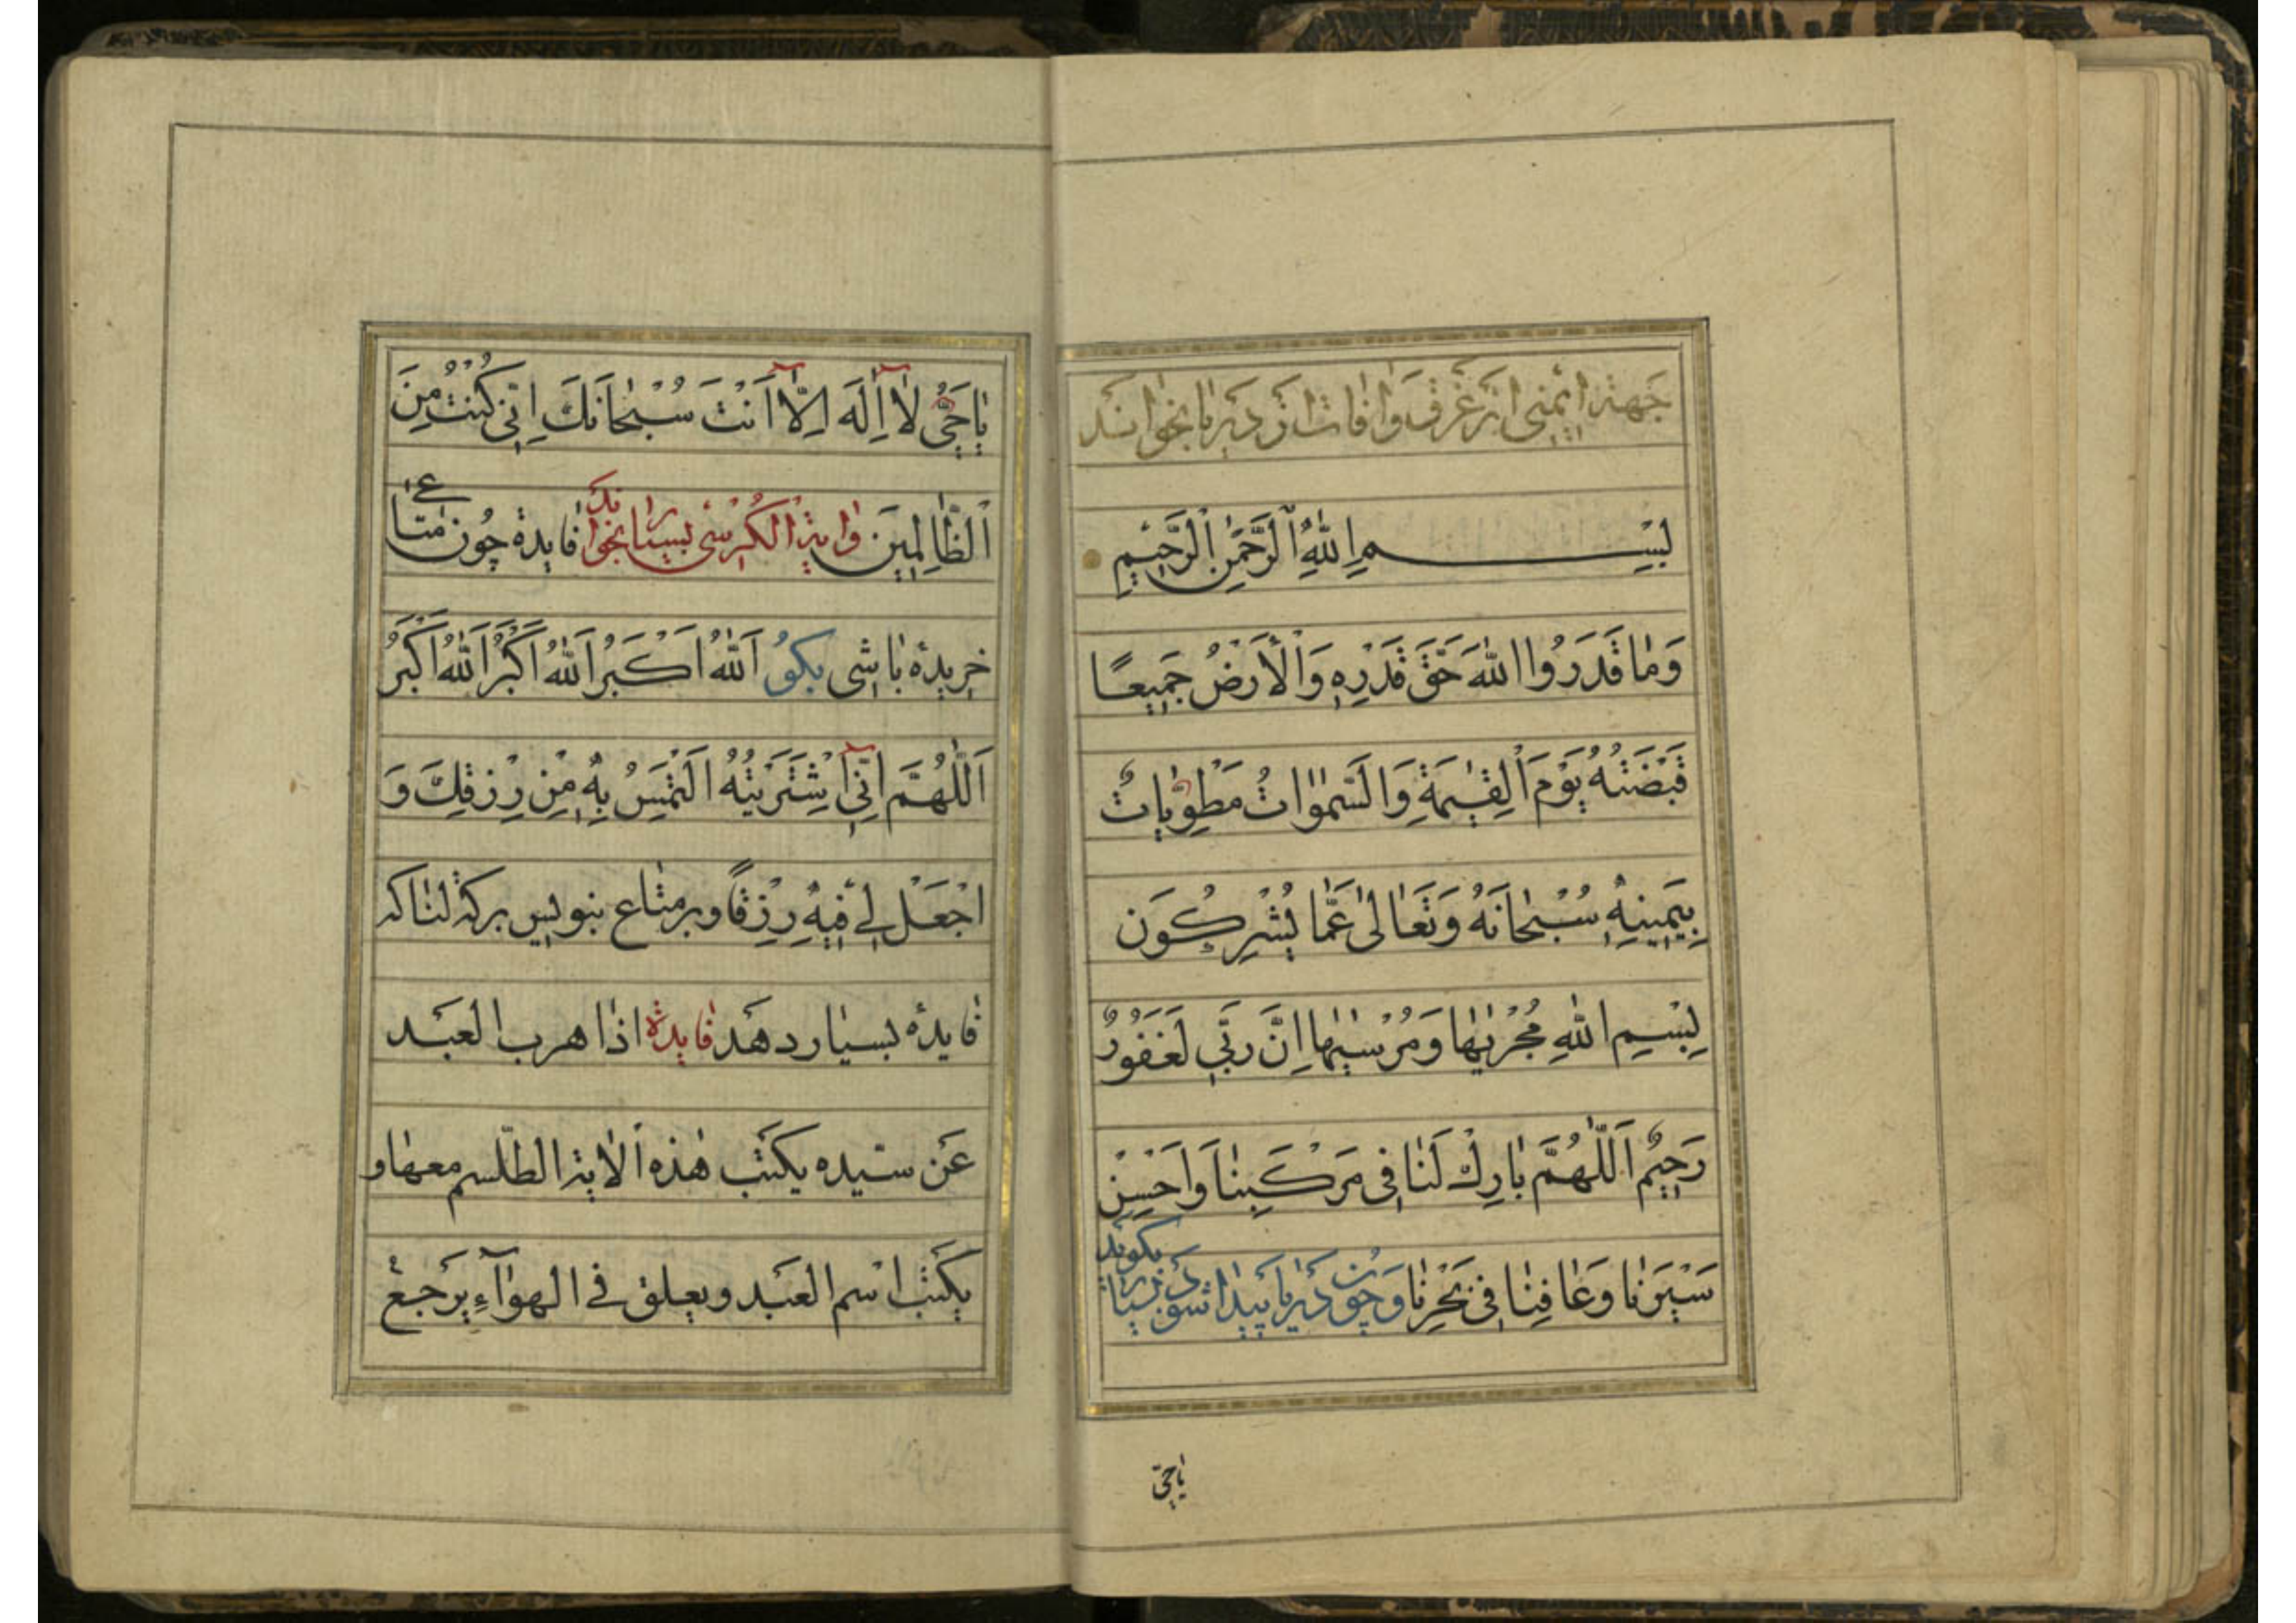 جَهتِ ایمنی از غرق و آفات در دریا بخوانند
بِسْمِ اللّٰهِ الرَّحْمٰنِ الرَّحِيمِ
وَمَا قَدَرُوا اللّٰهَ حَقَّ قَدْرِهِ وَالْأَرْضُ جَمِيعًا
قَبْضَتُهُ يَوْمَ الْقِيٰمَةِ وَالسَّمٰوَاتُ مَطْوِيَّاتٌ
بِيَمِينِهِ سُبْحَانَهُ وَتَعَالىٰ عَمَّا يُشْرِكُونَ
بِسْمِ اللّٰهِ مُجْرٰيهَا وَمُرْسٰيهَا إِنَّ رَبِّي لَغَفُورٌ
رَحِيمٌ اَللّٰهُمَّ بَارِكْ لَنَا فِي مَرْكَبِنَا وَاَحْسِنْ
سَيْرَنَا وَعَافِنَا فِي بَحْرِنَا وَچون دریا پیدا شود بسیار بگوید
یاحیّ
يَاحَيُّ لَا اِلٰهَ اِلَّا اَنْتَ سُبْحَانَكَ اِنِّي كُنْتُ مِنَ
الظَّالِمِينَ وایة الکرسی بسیار بخواند فایدة چون متاعی
خریده باشی بکو اَللّٰهُ اَكْبَرُ اَللّٰهُ اَكْبَرُ اَللّٰهُ اَكْبَرُ
اَللّٰهُمَّ اِنِّي اشْتَرَيْتُهُ اَلْتَمِسُ بِهِ مِنْ رِزْقِكَ وَ
اجْعَلْ لِي فِيهِ رِزْقًا وبر متاع بنویس برکة لنا که
فایدهٔ بسیار دهد فایدة اذا هرب العبد
عن سیده یکتب هٰذه الایة الطلسم معها و
یکتب اسم العبد ویعلق فی الهوآء یرجع